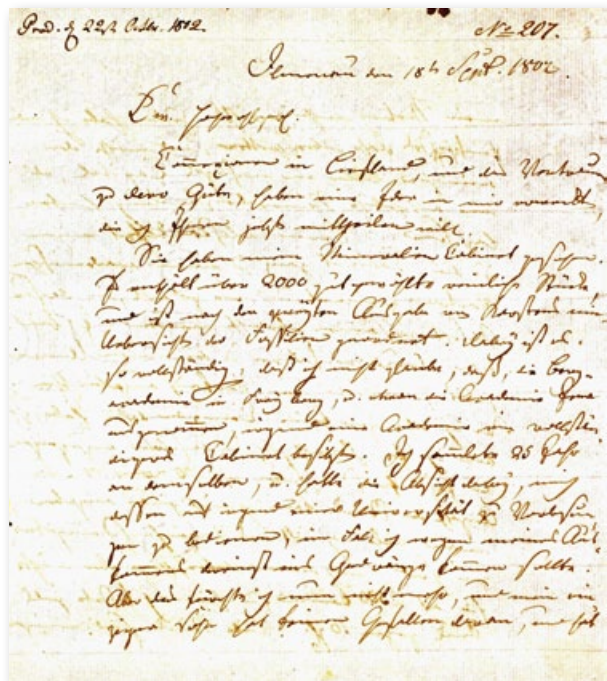 Präs. d. 22sten Octbr. 1802.
No 207.
Ilmenau den 18ten Sept. 1802.
Ew.
in Liefland, und das Vertrauen
zu dero Güte, haben eine Idee in mir erweckt,
die ich Ihnen jetzt mittheilen will.
Sie haben mein Mineralien Cabinet gesehen.
Es enthält über 2000 gut gewählte Stücke
und ist nach der Ausgabe von Karstens
Uebersicht der Fossilien geordnet. Dabey ist es
so vollständig, daß ich nicht glaube, daß, die Berg-
academie in Freyberg, u. etwa die Academie Jena
ausgenommen, irgend eine Academie ein vollstän-
digeres Cabinet besitzt. Ich sammlete 25 Jahr
an demselben, u. hatte die Absicht dabey, mich
dessen auf irgend einer Universität zu Vorlesun-
gen zu bedienen, im Fall ich wegen meines Aus-
kommens dereinst ins Gedränge kommen sollte.
Aber das fürchte ich nun nicht mehr, und mein ein-
ziger Sohn hat keinen Gefallen daran, und hat